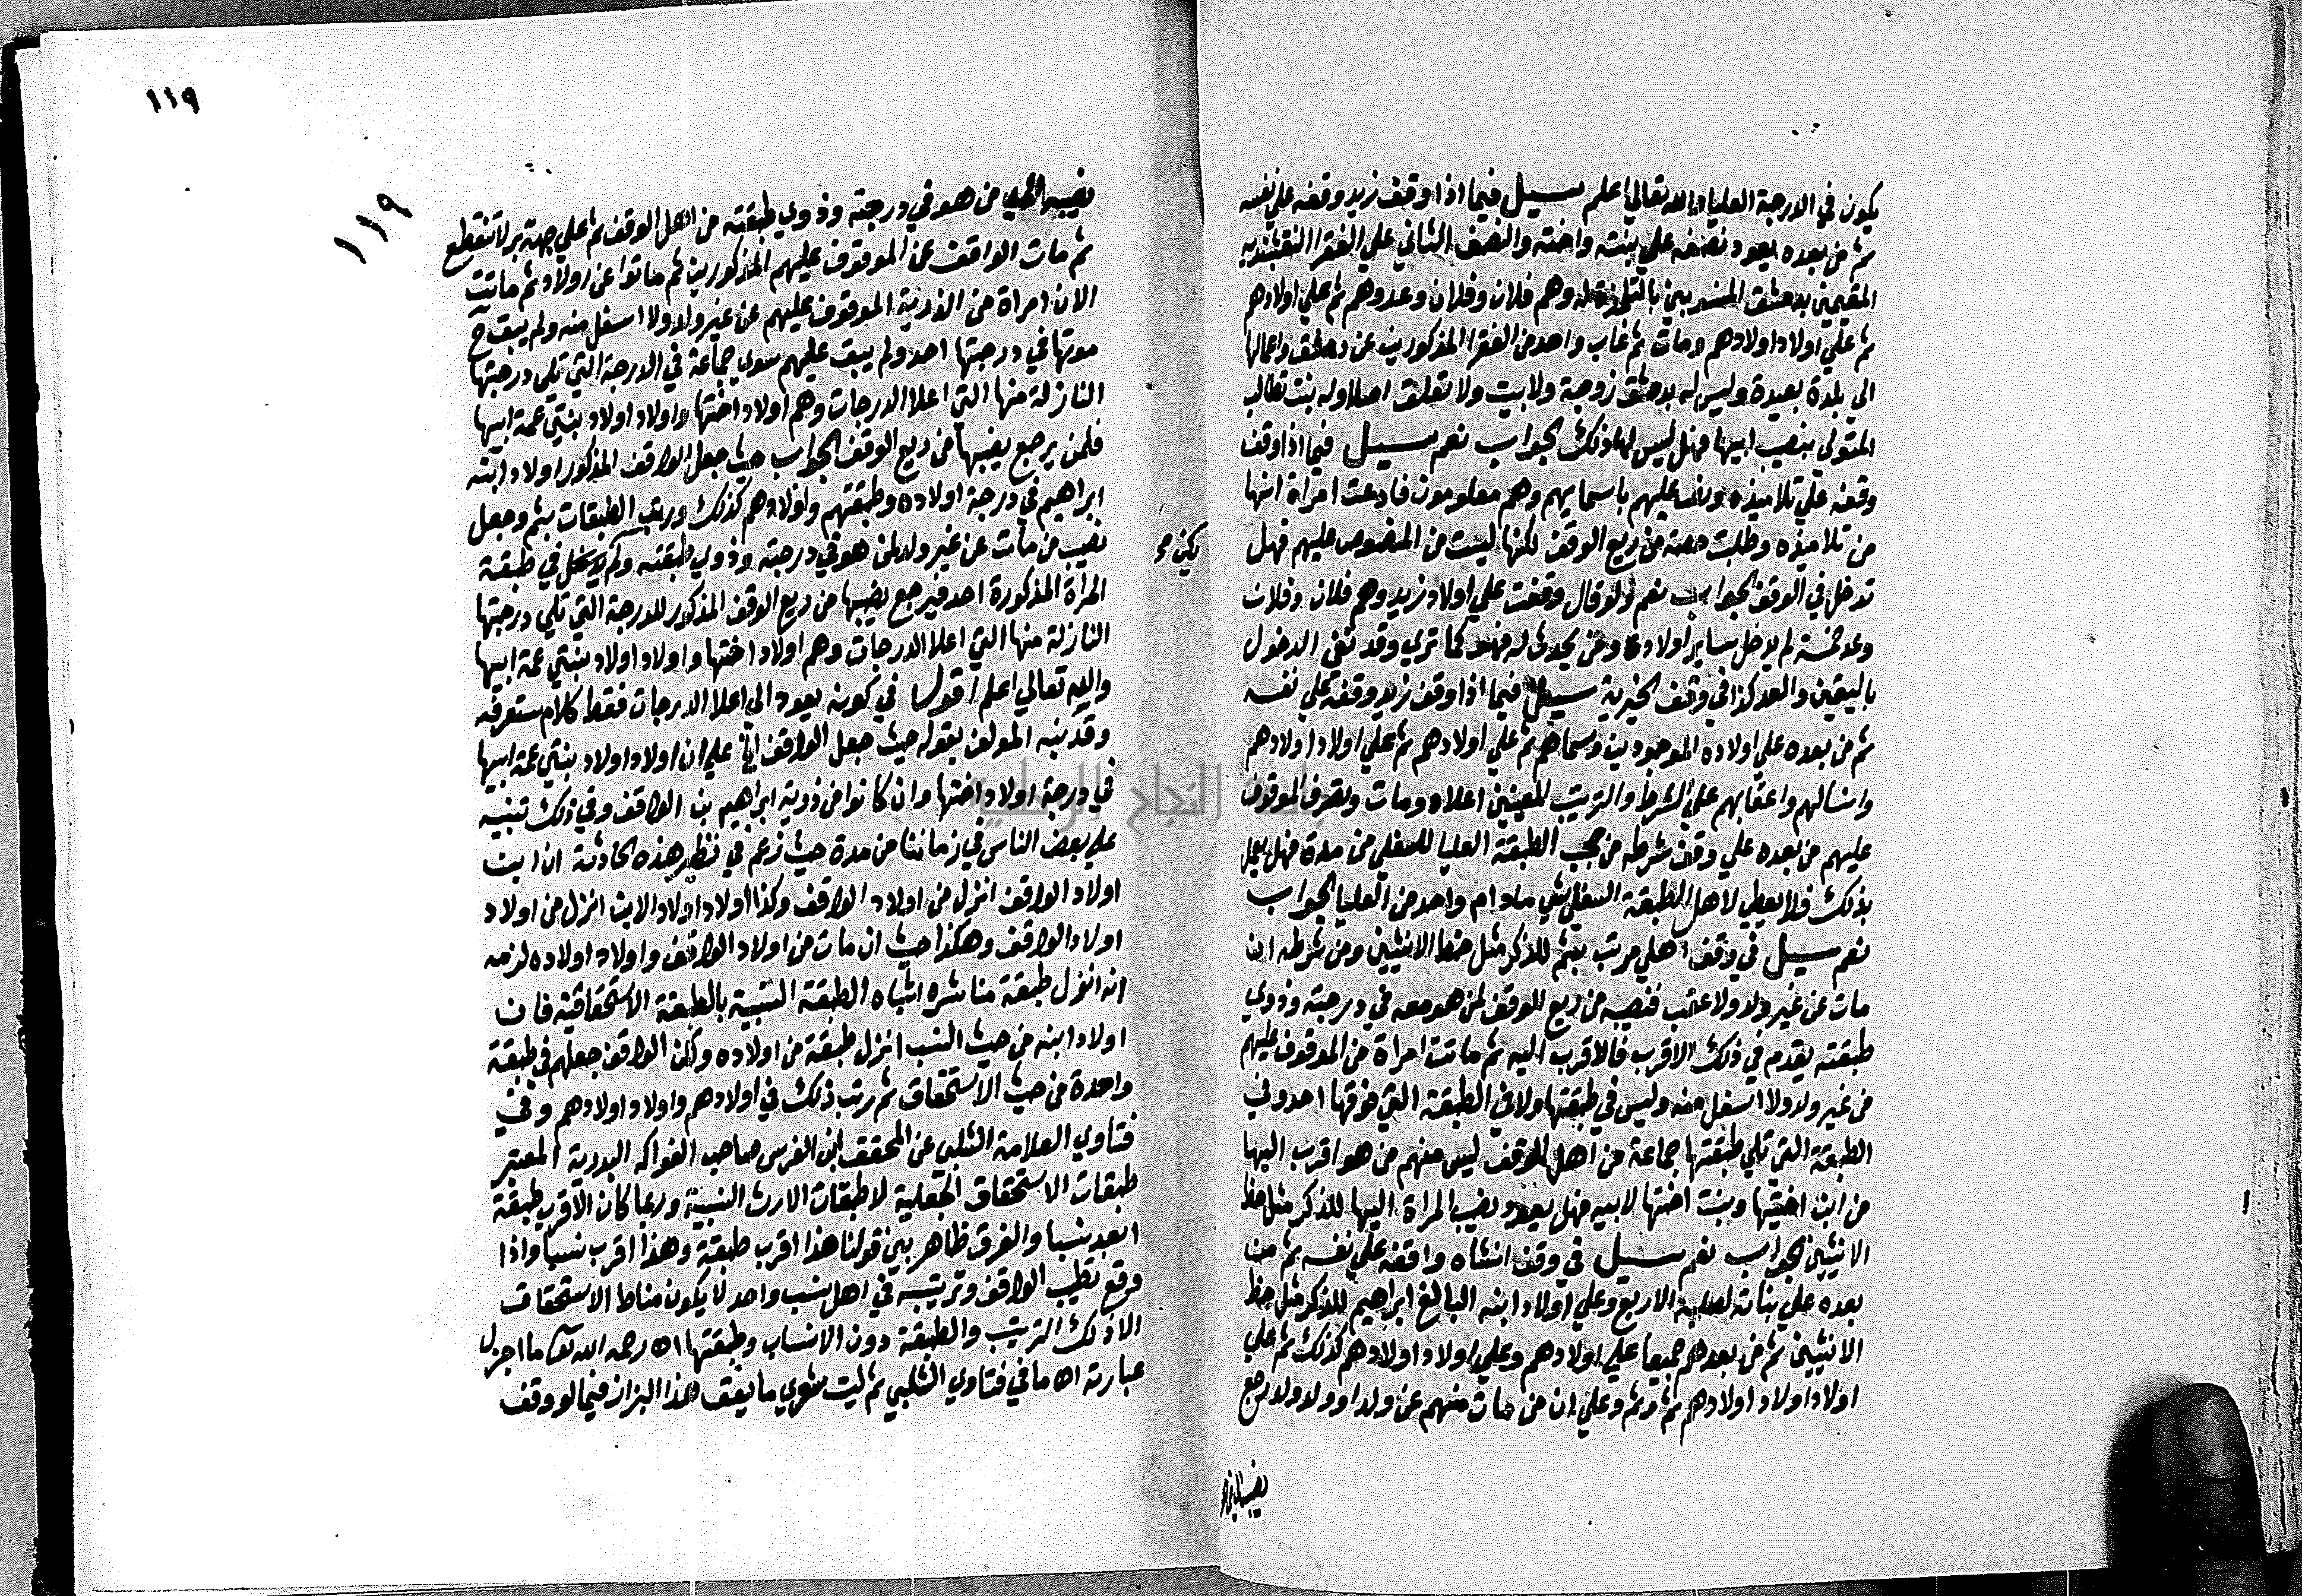 يكون في الدرجة العليا والله تعالى اعلم سيل فيما اذا وقف زيد وقفه علي نفسه
ثم من بعده يعود نصفه علي بنته واخته والنصف الثاني علي الفقرا النقشبندية
المقيمين بدمشق المنسوبين بالتلمذة له وهم فلان وفلان وعدوهم ثم علي اولادهم
ثم علي اولاد اولادهم ومات ثم غاب واحد من الفقرا المذكورين عن دمشق واعمالها
الي بلدة بعيدة وليس له بدمشق زوجة ولا بيت ولا تعلق اصلا وله بنت تطالب
المتولي بنصيب ابيها فهل ليس لها ذلك الجواب نعم سيل فيما اذا وقف
وقفه علي تلاميذه ونص عليهم باسمايهم وهم معلومون فادعت امراة انها
من تلاميذه وطلبت حصة من ريع الوقف لكنها ليست من المنصوص عليهم فهل
تدخل في الوقف الجواب نعم ولو قال وقفت علي اولاد زيد وهم فلان وفلان
وعد خمسة لم يدخل ساير اولاده ومن يحدث له فهو كما تري وقد نفي الدخول
باليقين والعد كذا في وقف الخيرية سيل فيما اذا وقف زيد وقفه علي نفسه
ثم من بعده علي اولاده الموجودين وسماهم ثم علي اولادهم ثم علي اولاد اولادهم
وانسالهم واعقابهم علي الشرط والترتيب المعينين اعلاه ومات وتصرف الموقوف
عليهم من بعده علي وفق شرطه من حجب الطبقة العليا للسفلي من مدة فهل يعمل
بذلك فلا يعطي لاهل الطبقة السفلي شي مادام واحد من العليا الجواب
نعم سيل في وقف اهلي مرتب بثم للذكر مثل حظ الانثيين ومن شرطه ان
مات عن غير ولد ولا عقب فنصيبه من ريع الوقف لمن هو معه في درجته وذوي
طبقته يقدم في ذلك الاقرب فالاقرب اليه ثم ماتت امراة من الموقوف عليهم
من غير ولد ولا اسفل منه وليس في طبقتها ولا في الطبقة التي فوقها احد وفي
الطبقة التي تلي طبقتها جماعة من اهل الوقف ليس منهم من هو اقرب اليها
من ابن اختيها وبنت اختها لابيه فهل يعود نصيب المراة اليها للذكر مثل حظ
الانثيين الجواب نعم سيل في وقف انشاه واقفه علي نفسه ثم من
بعده علي بناته لصلبه الاربع وعلي اولاد ابنه البالغ ابراهيم للذكر مثل حظ
الانثيين ثم من بعدهم جميعا علي اولادهم وعلي اولاد اولادهم كذلك ثم علي
اولاد اولاد اولادهم ثم وثم وعلي ان من مات منهم عن ولد او ولد ولد رجع
١١٩
١١٩
نصيبه من هو في درجته وذوي طبقته من اهل الوقف ثم علي جهة بر لا تنقطع
ثم مات الواقف عن الموقوف عليهم المذكورين ثم ماتوا عن اولاد ثم ماتت
الان امراة من الذرية الموقوف عليهم عن غير ولد ولا اسفل منه ولم يبق ح
موتها في درجتها احد ولم يبق عليهم سوي جماعة في الدرجة التي تلي درجتها
النازلة منها التي اعلا الدرجات وهم اولاد اختها واولاد اولاد بنتي عمة ابيها
فلمن يرجع نصيبها من ريع الوقف الجواب حيث جعل الواقف المذكور اولاد ابنه
ابراهيم في درجة اولاده وطبقتهم واولادهم كذلك ورتب الطبقات بثم وجعل
نصيب من مات عن غير ولد لمن هو في درجته وذوي طبقته ولم في طبقة
يكن صح
المراة المذكورة احد فيرجع نصيبها من ريع الوقف المذكور للدرجة التي تلي درجتها
النازلة منها التي اعلا الدرجات وهم اولاد اختها واولاد اولاد بنتي عمة ابيها
والله تعالي اعلم اقول في كونه يعود الي اعلا الدرجات فقط كلام ستعرفه
وقد نبه المولف بقوله حيث جعل الواقف الخ علي ان اولاد اولاد بنتي عمة ابيها
في درجة اولاد اختها وان كانوا من ذرية ابراهيم بن الواقف وفي ذلك تنبيه
علي بعض الناس في زماننا من مدة حيث زعم في نظير هذه الحادثة ان ابن
اولاد الواقف انزل من اولاد الواقف وكذا اولاد اولاد الابن انزل من اولاد
اولاد الواقف وهكذا حيث ان مات من اولاد الواقف واولاد اولاده لزعمه
انه انزل طبقة منا شره اشتباه الطبقة النسبية بالطبقة الاستحقاقية فان
اولاد ابنه من حيث النسب انزل طبقة من اولاده ولكن الواقف جعلهم في طبقة
واحدة من حيث الاستحقاق ثم رتب ذلك في اولادهم واولاد اولادهم وفي
فتاوي العلامة الشلبي عن المحقق ابن الغرس صاحب الفواكه البدرية المعتبر
طبقات الاستحقاق الجعلية لا طبقات الارث النسبية وربما كان الاقرب طبقة
ابعد نسبا والفرق ظاهر بين قولنا هذا اقرب طبقة وهذا اقرب نسبا واذا
وقع الواقف وترتيبه في اهل نسب واحد لا يكون مناط الاستحقاق
الا ذلك الترتيب والطبقة دون الانساب وطبقتها اه رحمه الله تعالى ما اجزل
عبارته اه ما في فتاوي الشلبي ثم ليت شعري ما يعتق هذا البزان فيما لو وقف